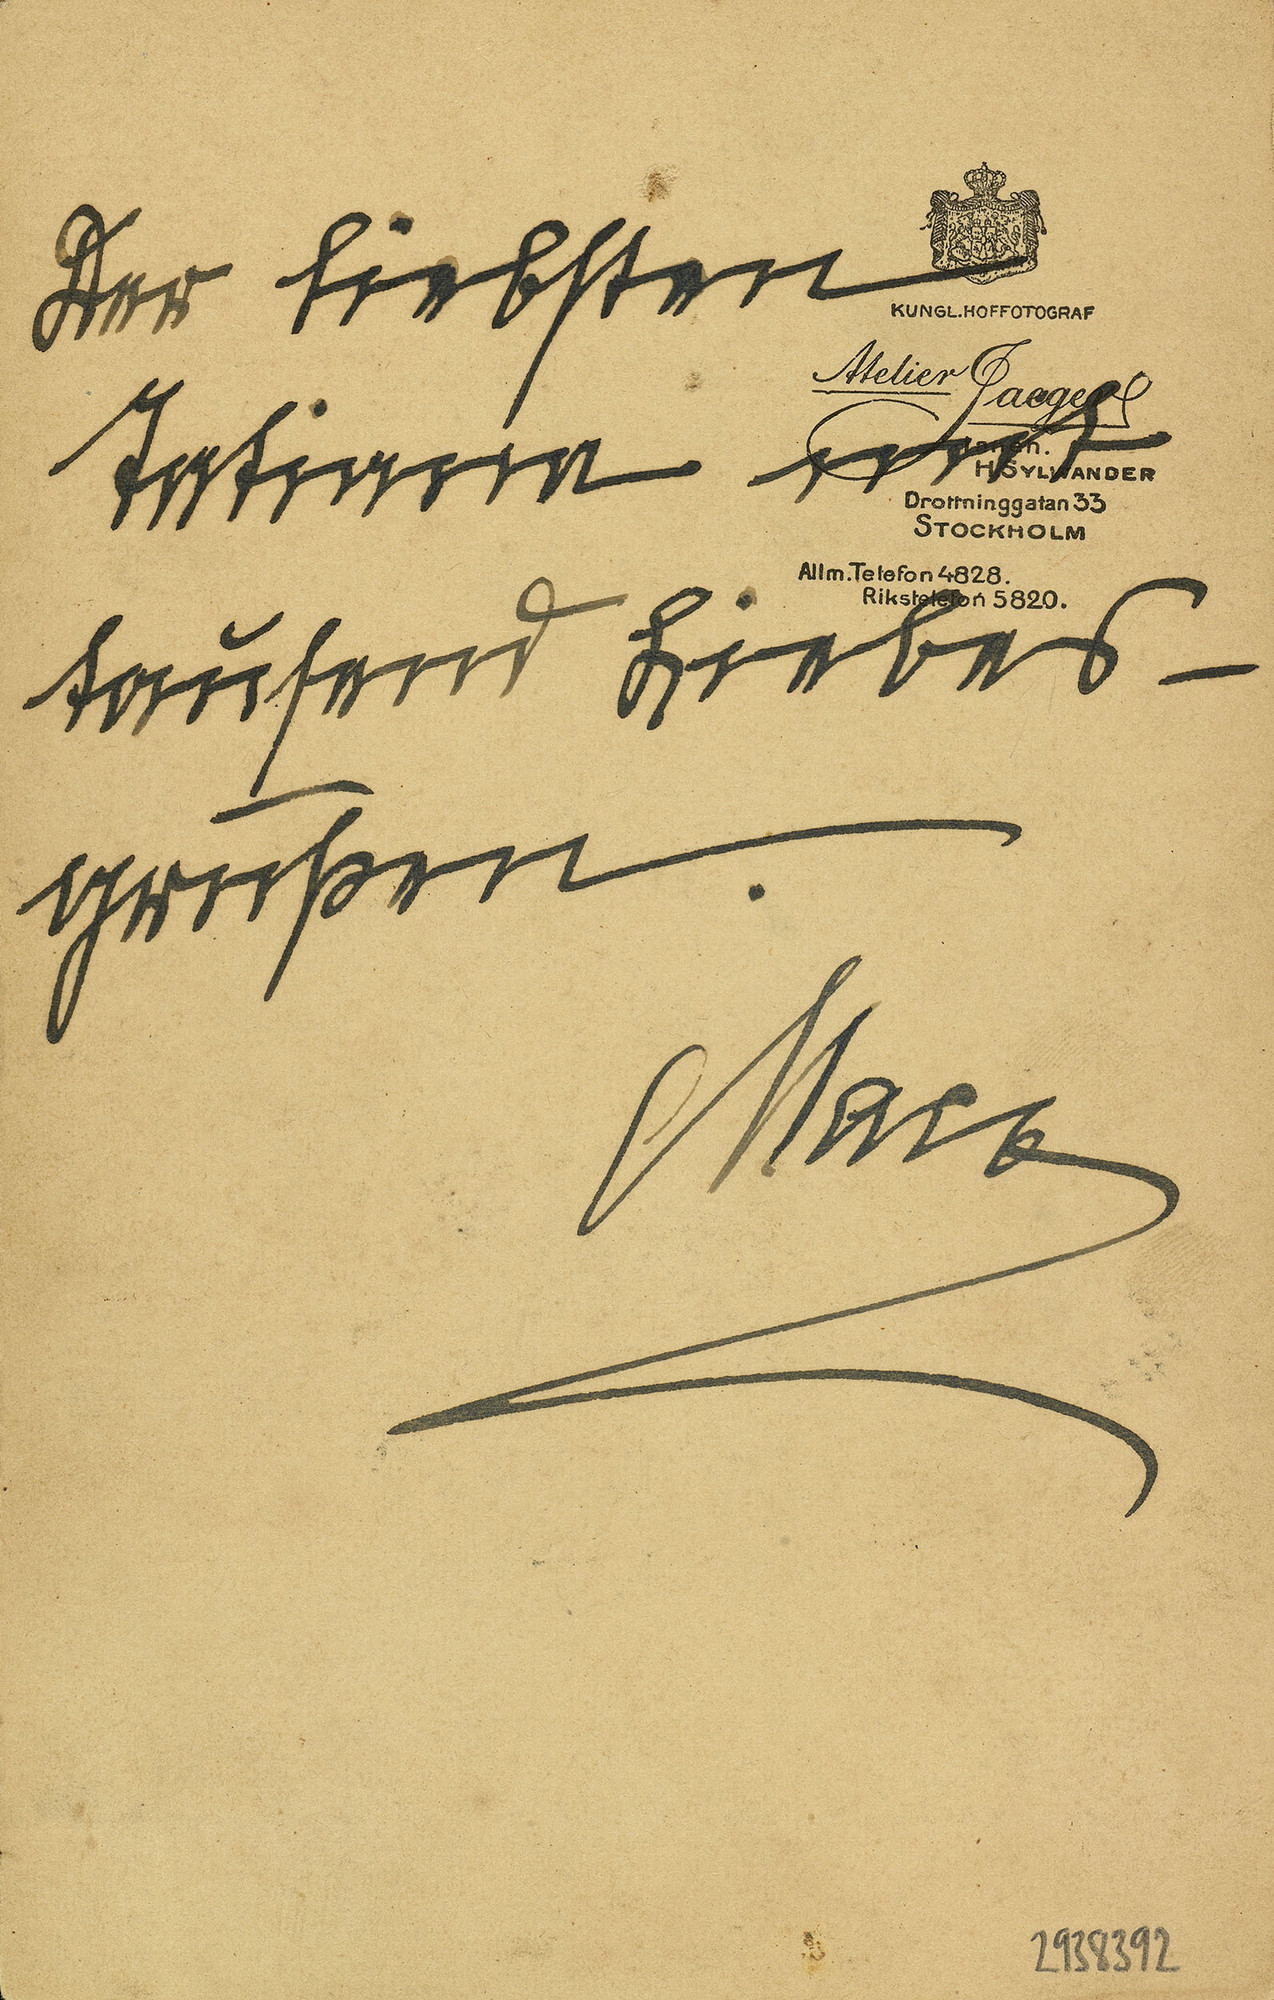 Der liebsten
KUNGL.HOFFOTOGRAF
Atelier Jaeger
Tatiana mit
H. SYLWANDER
Drottninggatan 33
STOCKHOLM
Allm. Telefon 4828.
Rikstelefon 5820.
tausend Liebes-
grüßen.
2938392